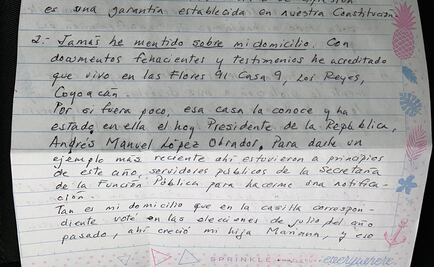 es una garantía establecida en nuestra Constitución
2.- Jamás he mentido sobre mi domicilio. Con
documentos fehacientes y testimonios he acreditado
que vivo en las Flores 91 Casa 9, Los Reyes,
Coyoacán.
Por si fuera poco, esa casa la conoce y ha
estado en ella el hoy Presidente de la República,
Andrés Manuel López Obrador. Para darle un
ejemplo más reciente ahí estuvieron a principios
de este año, servidores públicos de la Secretaría
de la Función Pública para hacerme una notifica-
ción.
Tan es mi domicilio que en la casilla correspon
diente voté en las elecciones de julio del año
pasado, ahí creció mi hija Mariana, y eso
SPRINKLE everywhere